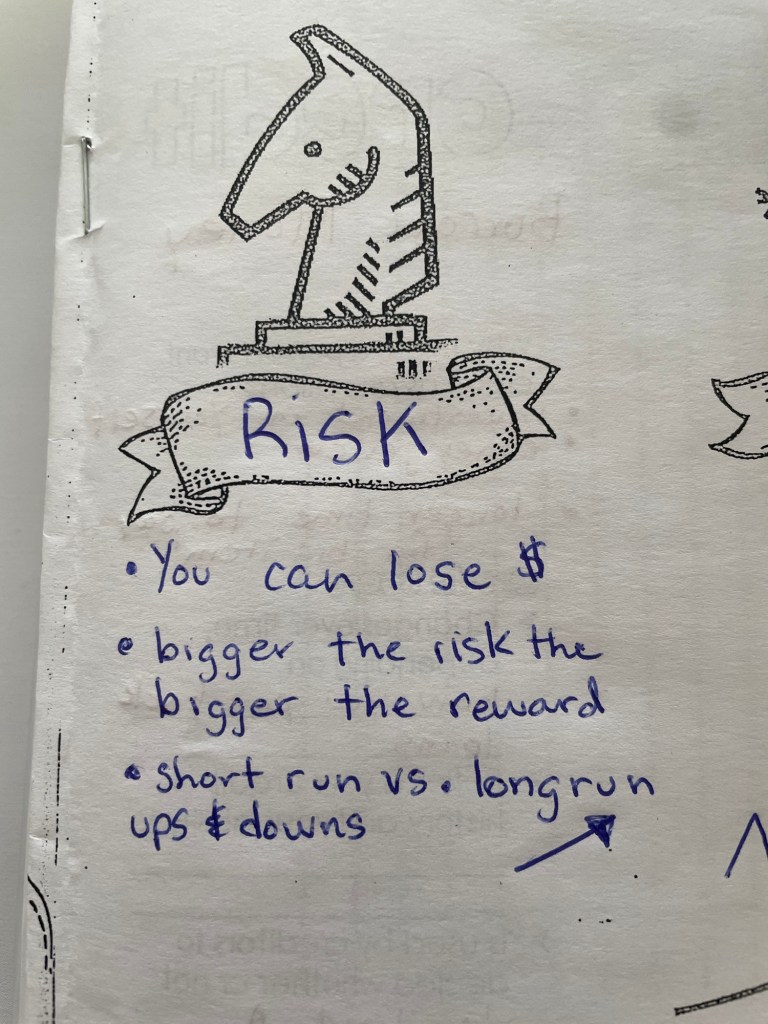 Risk
• You can lose $
• bigger the risk the
bigger the reward
• short run vs. long run
ups & downs